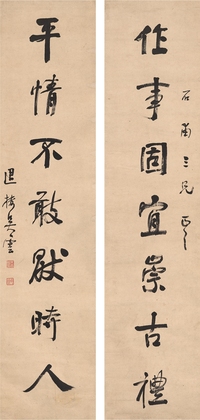 作事固宜崇古禮
石三兄正之
平情不敢時人
退樓吳雲